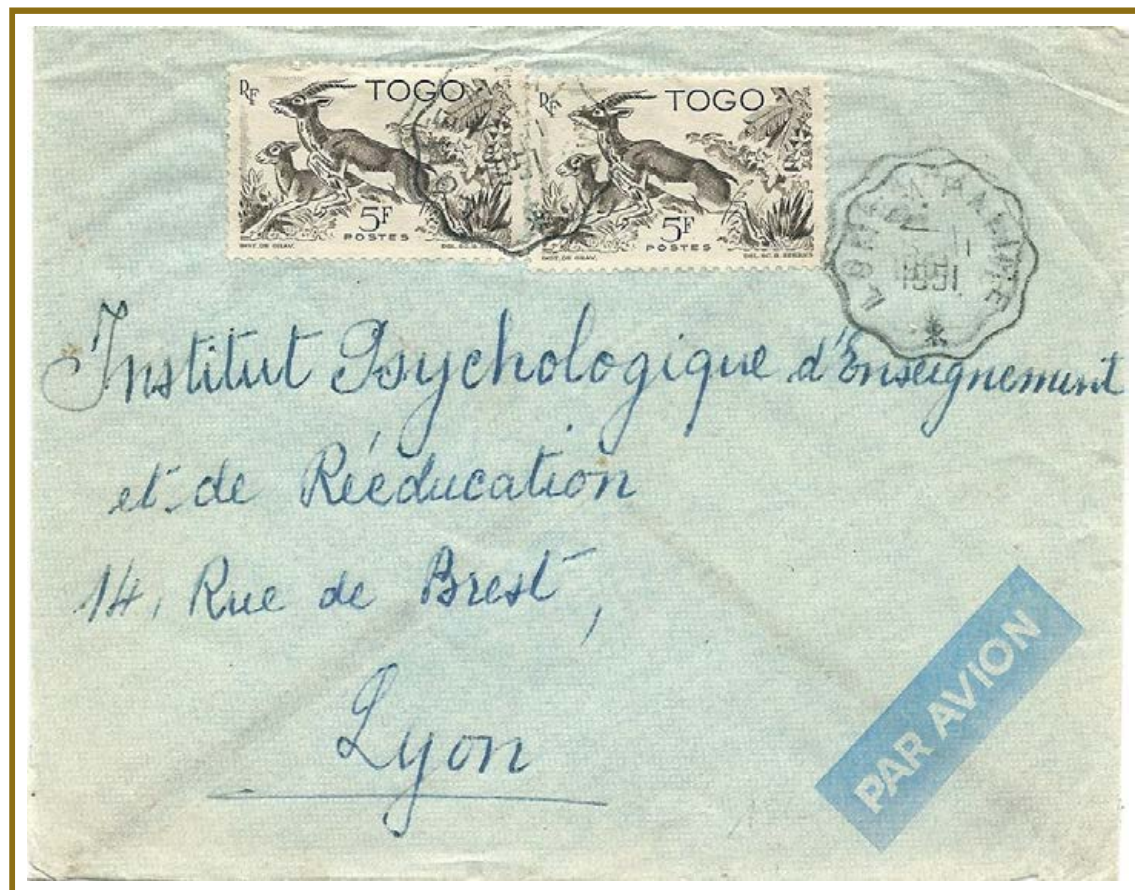 RF TOGO
5F
POSTES
INST. DE GRAV.
RF TOGO
5F
POSTES
INST. DE GRAV.
LOME PALIME
1951
Institut Psychologique d'Enseignement
et de Rééducation
14, Rue de Brest,
Lyon
PAR AVION